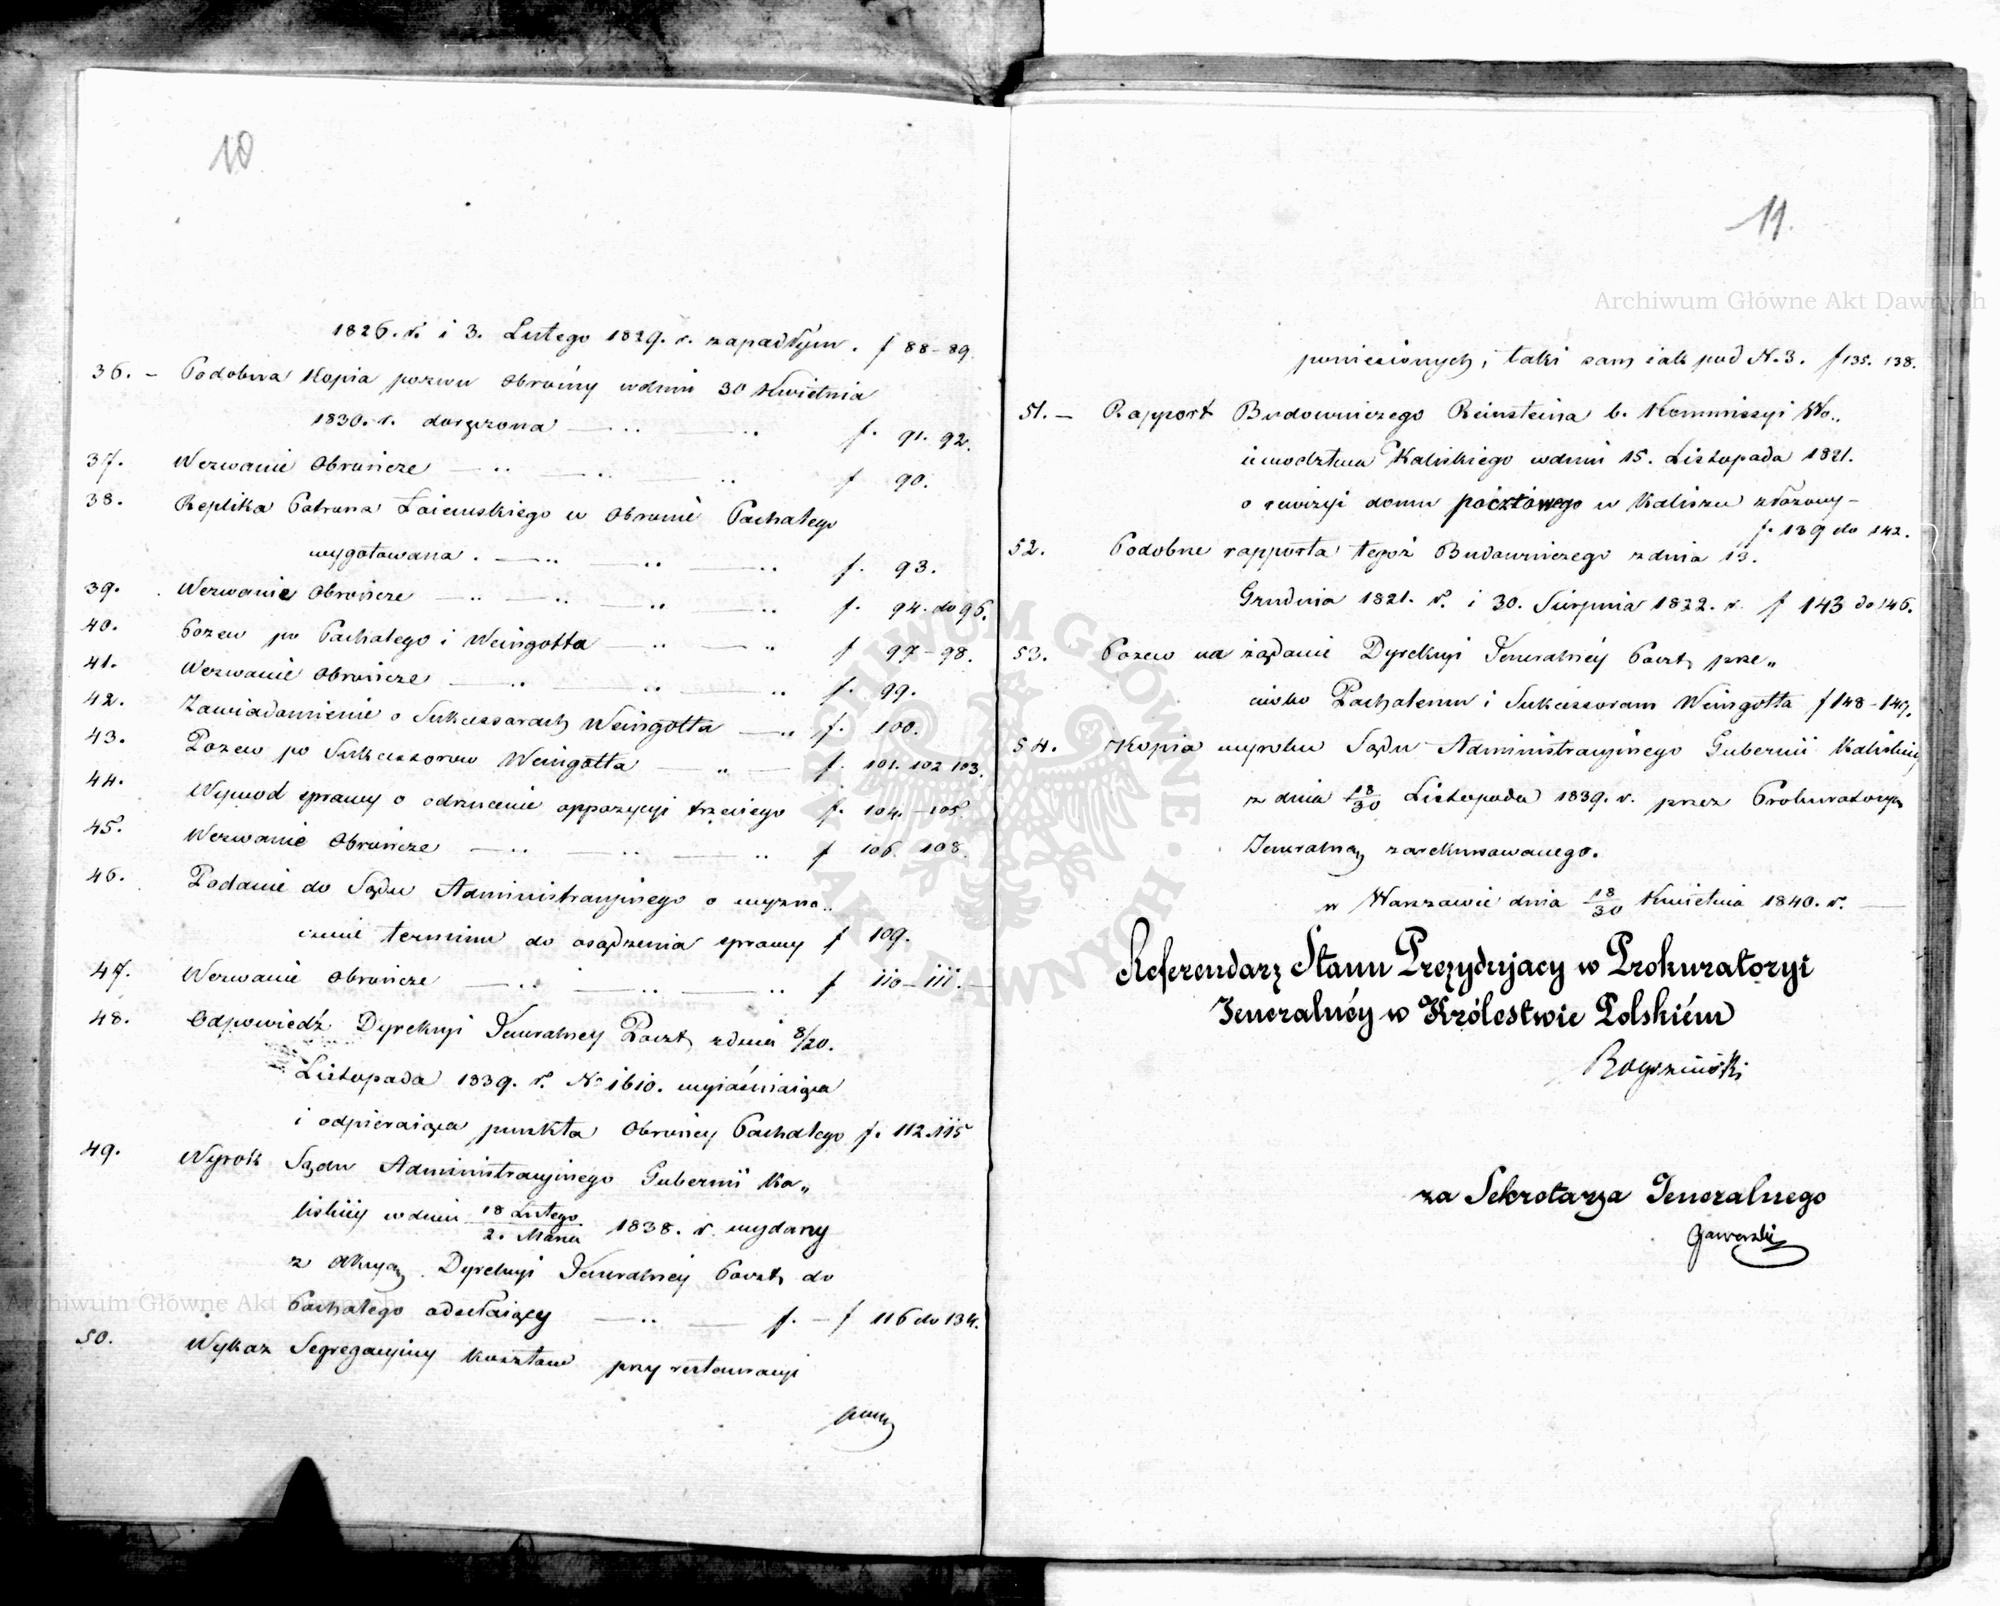 10
1826. r. i 3. Lutego 1829. r. zapadłym. f 88-89.
36. - Podobna Kopia pozwu Obrońcy w dniu 30 Kwietnia
1830. r. doręczona f. 91. 92.
37. Wezwanie Obrończe f 90.
38. Replika Patrona Łaiewskiego w Obronie Pachałego
wygotowana. f. 93.
39. Wezwanie Obrończe f. 94. do 96.
40. Pozew po Pachałego i Weingotta f 97-98.
41. Wezwanie Obrończe f. 99.
42. Zawiadomienie o Sukcessorach Weingotta f. 100.
43. Pozew po Sukcessorow Weingotta f. 101. 102 103.
44. Wywod sprawy o odrzucenie oppozycyi trzeciego f. 104.-105.
45. Wezwanie Obrończe f 106. 108.
46. Podanie do Sądu Administracyinego o wyzna„
czenie terminu do osądzenia sprawy f 109.
47. Wezwanie Obrończe f 110-111.
48. Odpowiedź Dyrekcyi Jeneralney Poczt z dnia 8/20.
Listopada 1839. r. No 1610. wyiaśniaiąca
i odpieraiąca punkta Obrońcy Pachałego f. 112.115
49. Wyrok Sądu Administracyinego Gubernii Ka„
liskiey w dniu 18 Lutego / 2. Marca 1838. r. wydany
z Dyrekcyi Jeneralney Poczt do
Pachałego odsełaiący f. - f 116 do 134.
50. Wykaz Segregacyiny kosztow przy restauracyi
11.
poniesionych, taki sam iak pod N. 3. f 135. 138.
51. - Rapport Budowniczego Reinsteina b. Kommissyi Wo„
iewodztwa Kaliskiego w dniu 15. Listopada 1821.
o rewizyi domu pocztowego w Kaliszu złożony -
f. 139 do 142.
52. Podobne rapporta tegoż Budowniczego z dnia 13.
Grudnia 1821. r. i 30. Sierpnia 1822. r. f 143 do 146.
53. Pozew na żądanie Dyrekcyi Jeneralney Poczt prze„
ciwko Pachałemu i Sukcessorom Weingotta f 148-149.
54. Kopia wyroku Sądu Administracyinego Gubernii Kaliskiey
z dnia 18/30 Listopada 1839. r. przez Prokuratoryą
Jeneralną zarekursowanego.
w Warszawie dnia 18/30 Kwietnia 1840. r.
Referendarz Stanu Prezyduiący w Prokuratoryi
Jeneralnéy w Królestwie Polskiém
za Sekretarza Jeneralnego
Jaworski
Archiwum Główne Akt Dawnych
Archiwum Główne Akt Dawnych
ARCHIWUM GŁÓWNE AKT DAWNYCH